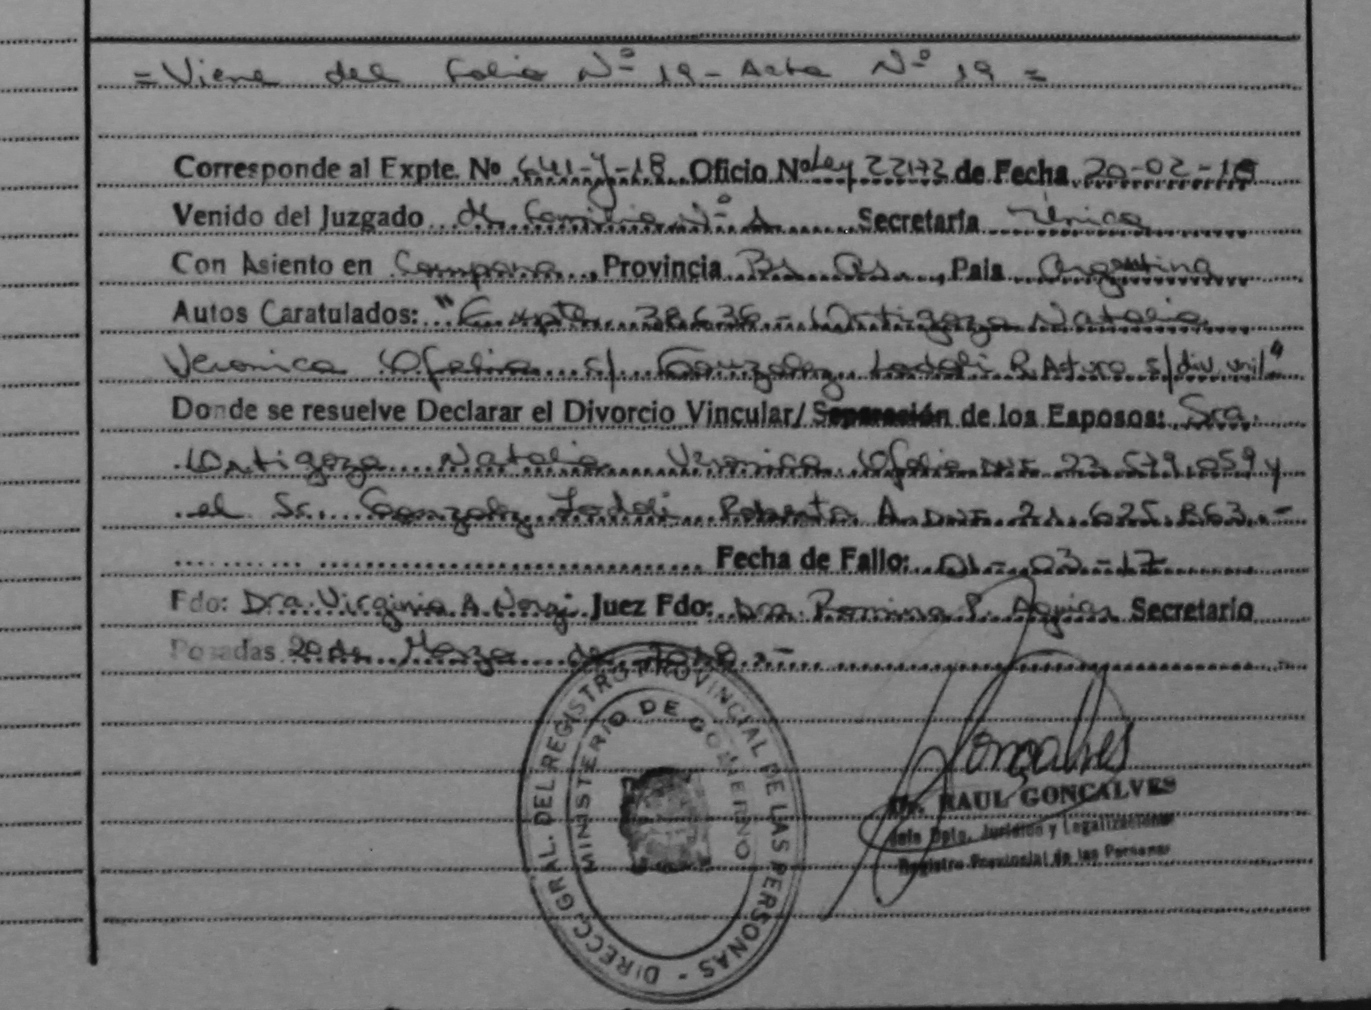 = Viene del folio Nº 19 - Acta Nº 19 =
Corresponde al Expte. Nº 641-y-18 Oficio Nº Ley 22172 de Fecha 20-02-18
Venido del Juzgado de Familia Nº 1 Secretaría Única
Con Asiento en Campana, Provincia Bs. As., País Argentina
Autos Caratulados: "Expte 38636 - Ortigoza Natalia
Veronica Ofelia c/ Gonzalez Lodoli R. Arturo s/div. vil"
Donde se resuelve Declarar el Divorcio Vincular/Separación de los Esposos: Sra.
Ortigoza Natalia Veronica Ofelia DNI 23.579.059 y
el Sr. Gonzalez Lodoli Roberto A. DNI 21.625.863.-
Fecha de Fallo: 01-03-17
Fdo: Dra. Virginia A. Juez Fdo: Dra. Romina P. Secretario
Posadas 20 de Marzo de 2018.-
DIRECC. GRAL. DEL REGISTRO PROVINCIAL DE LAS PERSONAS -
MINISTERIO DE GOBIERNO
Gonçalves
Dr. RAUL GONCALVES
Jefe Dpto. Jurídico y Legalizaciones
Registro Provincial de las Personas